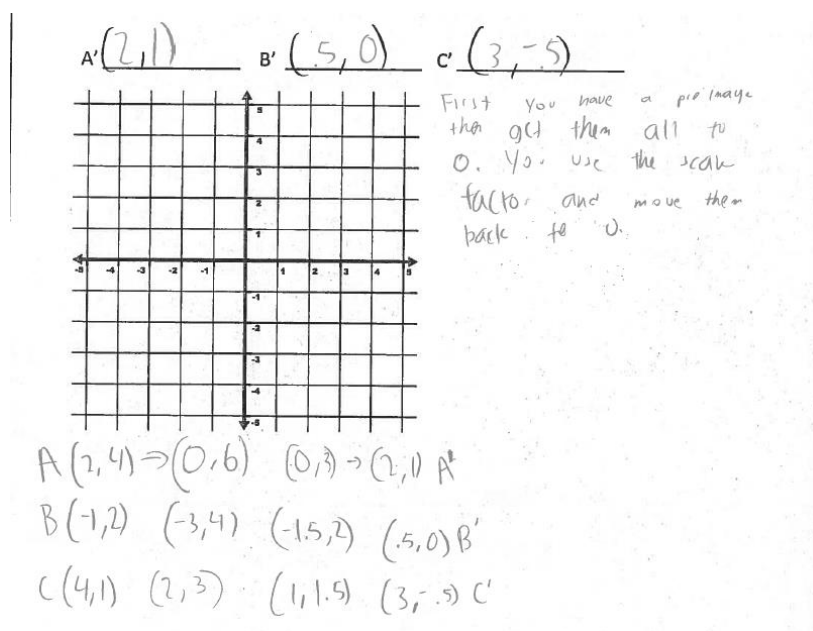 A' (2,1) B' (.5,0) C' (3,-.5)
First you have a pre image
then get them all to
0. You use the scale
factor and move them
back to 0.
5
4
3
2
1
-5 -4 -3 -2 -1 1 2 3 4 5
-1
-2
-3
-4
-5
A (2,4) ⇒ (0,6) (0,3) → (2,1) A'
B (-1,2) (-3,4) (-1.5,2) (.5,0) B'
C (4,1) (2,3) (1,1.5) (3,-.5) C'